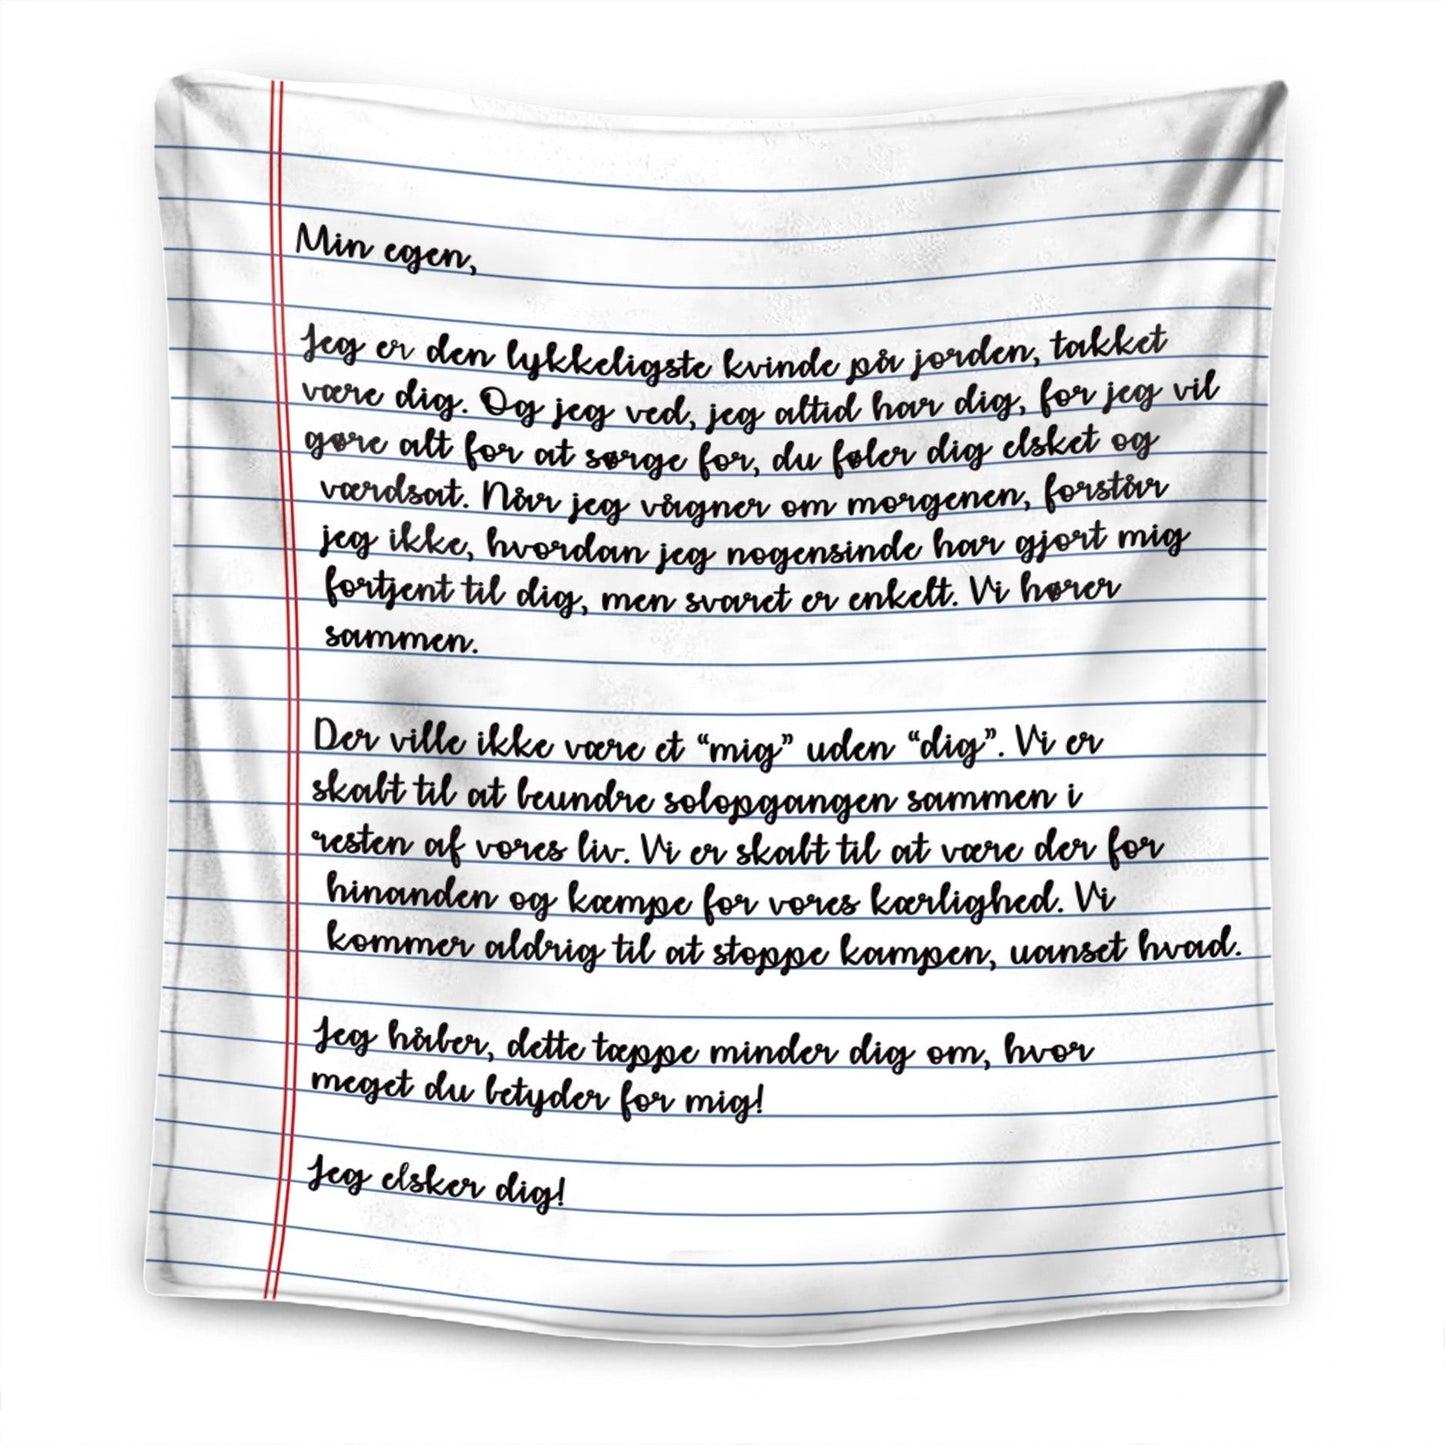 Min egen,
Jeg er den lykkeligste kvinde på jorden, takket
være dig. Og jeg ved, jeg altid har dig, for jeg vil
gøre alt for at sørge for, du føler dig elsket og
værdsat. Når jeg vågner om morgenen, forstår
jeg ikke, hvordan jeg nogensinde har gjort mig
fortjent til dig, men svaret er enkelt. Vi hører
sammen.
Der ville ikke være et “mig” uden “dig”. Vi er
skabt til at beundre solopgangen sammen i
resten af vores liv. Vi er skabt til at være der for
hinanden og kæmpe for vores kærlighed. Vi
kommer aldrig til at stoppe kampen, uanset hvad.
Jeg håber, dette tæppe minder dig om, hvor
meget du betyder for mig!
Jeg elsker dig!